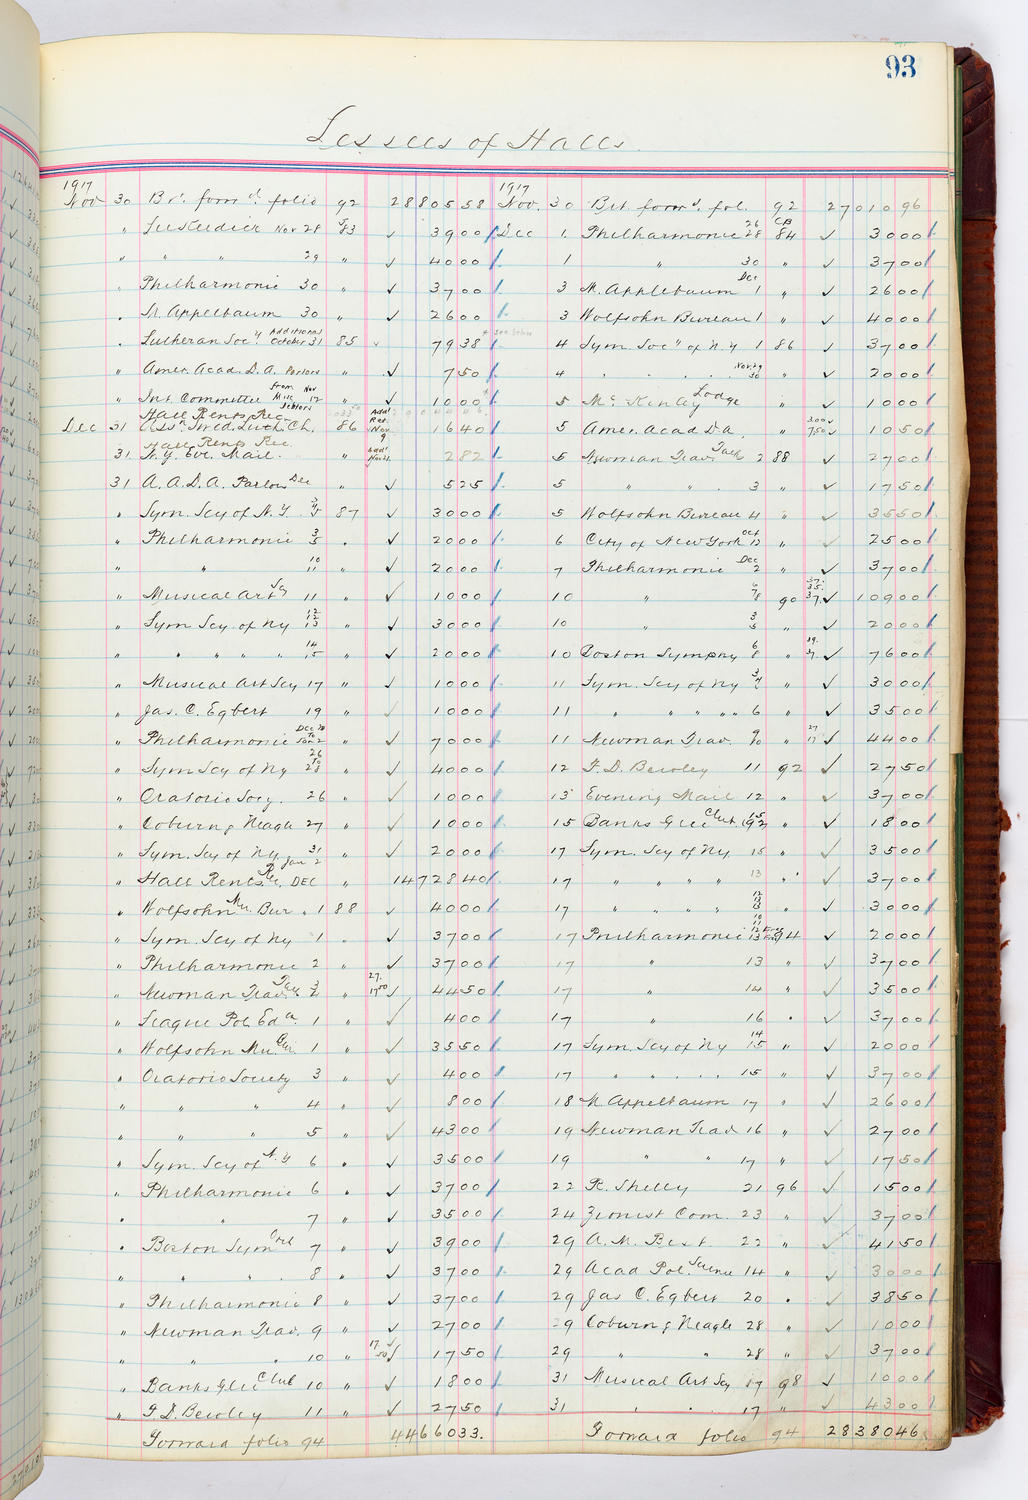 93
Lessees of Halls
1917
Nov 30 Brt forwd folio 92 2880558
" Nov 28 83 ✓ 3900
" " " 29 " ✓ 4000
" Philharmonic 30 " ✓ 3700
" M. Appelbaum 30 " ✓ 2600
" Lutheran Socy Additional October 31 85 ✓ 7938
" Amer. Acad. D. A. Parlors " ✓ 750
" Int. Committee from Nov 12 " ✓ 1000
Hall Rents Rec.
Dec 31 Assn Swed. Luth. Ch. 86 Addl Nov 9 1640
Hall Rents Rec.
31 N. Y. Eve. Mail. " Addl 282
31 A. A. D. A. Parlors Dec " ✓ 525
" Sym. Scy of N. Y. 3 5 87 ✓ 3000
" Philharmonic 3 5 " ✓ 2000
" " 10 11 " ✓ 2000
" Musical Art Sy 11 " ✓ 1000
" Sym Scy of Ny 12 13 " ✓ 3000
" " " " " 14 15 " ✓ 2000
" Musical Art Scy 17 " ✓ 1000
" Jas. C. Egbert 19 " ✓ 1000
" Philharmonic Dec 28 to Jan 2 " ✓ 7000
" Sym Scy of Ny 26 to 28 " ✓ 4000
" Oratorio Socy. 26 " ✓ 1000
" Coburn & Neagle 27 " ✓ 1000
" Sym. Scy of Ny. 31 Jan 2 " ✓ 2000
" Hall Rents Rec. DEC " 1472840
" Wolfsohn Mu. Bur " 1 88 ✓ 4000
" Sym. Scy of Ny 1 " ✓ 3700
" Philharmonic 2 " ✓ 3700
" Newman Trav. Talk 3 2 " 27. 1750 ✓ 4450
" League Pol. Edn. 1 " ✓ 400
" Wolfsohn Mu. Bur. 1 " ✓ 3550
" Oratorio Society 3 " ✓ 400
" " " 4 " ✓ 800
" " " 5 " ✓ 4300
" Sym. Scy of N. Y 6 " ✓ 3500
" Philharmonic 6 " ✓ 3700
" " 7 " ✓ 3500
" Boston Sym Orch 7 " ✓ 3900
" " " 8 " ✓ 3700
" Philharmonic 8 " ✓ 3700
" Newman Trav. 9 " ✓ 2700
" " " 10 " 17 50 ✓ 1750
" Banks Glee Club 10 " ✓ 1800
" F. D. Bewley 11 " ✓ 2750
Forward folio 94 4466033.
1917
Nov. 30 Brt forwd fol. 92 2701096
Dec 1. Philharmonic 26 28 CB 84 ✓ 3000
1 " 30 " ✓ 3700
3 M. Applebaum Dec 1 " ✓ 2600
3 Wolfsohn Bureau 1 " ✓ 4000
4 Sym. Socy of N. Y 1 86 ✓ 3700
4 " " " " Nov. 29 30 " ✓ 2000
5 McKinley Lodge " ✓ 1000
5 Amer. Acad D A. " 300 750 ✓ 1050
5 Newman Trav. Talk 2 88 ✓ 2700
5 " " " 3 " ✓ 1750
5 Wolfsohn Bureau 4 " ✓ 3550
6 City of New York Oct 12 " ✓ 2500
7 Philharmonic Dec 2 " ✓ 3700
10 " 6 7 8 90 37. 35. 37. ✓ 10900
10 " 3 5 " ✓ 2000
10 Boston Symphy 6 8 " 39. 37. ✓ 7600
11 Sym. Scy of Ny " ✓ 3000
11 " " " " 6 " ✓ 3500
11 Newman Trav. 9 10 " 27 17 ✓ 4400
12 F. D. Bewley 11 92 ✓ 2750
13 Evening Mail 12 " ✓ 3700
15 Banks Glee Club " ✓ 1800
17 Sym. Scy of Ny. 15 " ✓ 3500
17 " " " " 13 " ✓ 3700
17 " " " " 12 13 " ✓ 3000
17 Philharmonic 94 ✓ 2000
17 " 13 " ✓ 3700
17 " 14 " ✓ 3500
17 " 16 " ✓ 3700
17 Sym. Scy of Ny 14 15 " ✓ 2000
17 " " " " 15 " ✓ 3700
18 M. Appelbaum 17 " ✓ 2600
19 Newman Trav 16 " ✓ 2700
19 " " 17 " ✓ 1750
22 R. Shelly 21 96 ✓ 1500
24 Zionist Com. 23 " ✓ 3700
29 A. M. Best 22 " ✓ 4150
29 Acad Pol. Science 14 " ✓ 3000
29 Jas C. Egbert 20 " ✓ 3850
29 Coburn & Neagle 28 " ✓ 1000
29 " " 28 " ✓ 3700
31 Musical Art Sy 17 98 ✓ 1000
31 " " " 17 " ✓ 4300
Forward folio 94 2838046